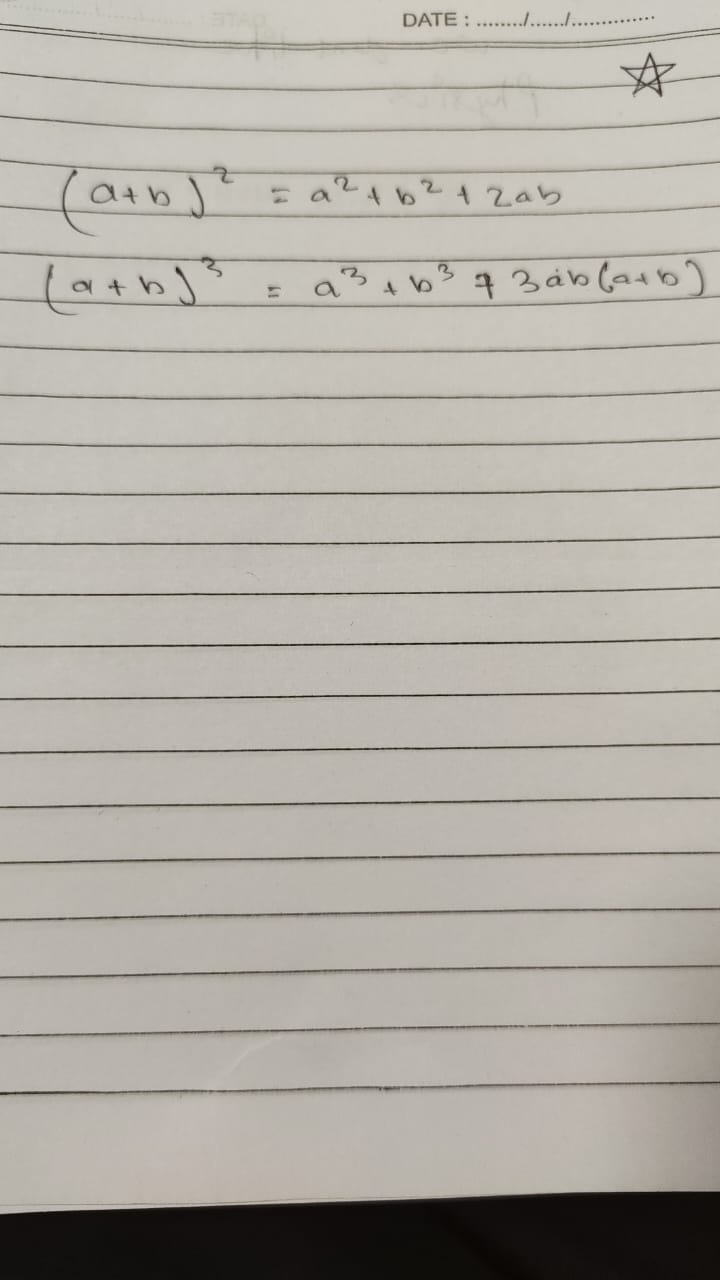 DATE : ......../....../..............
(a+b)² = a² + b² + 2ab
(a+b)³ = a³ + b³ + 3ab(a+b)